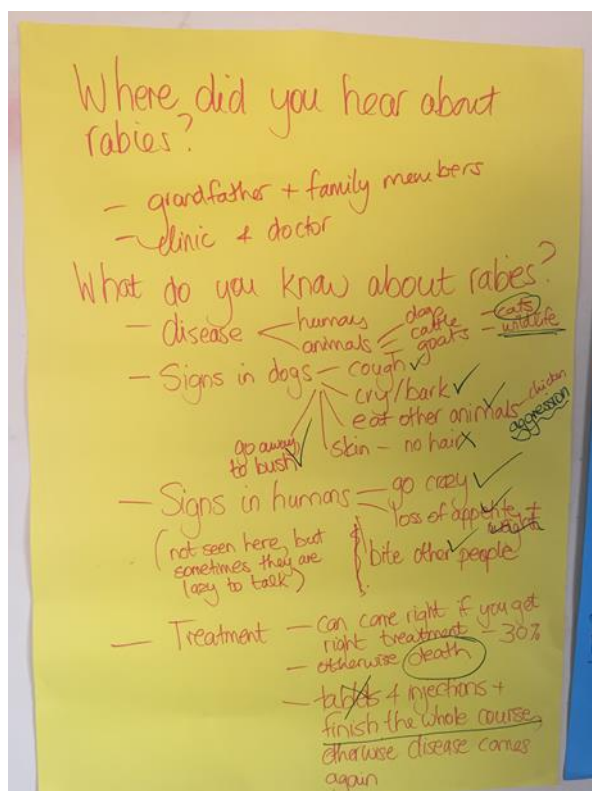 Where did you hear about
rabies?
- grandfather + family members
- clinic & doctor
What do you know about rabies?
- disease
- humans
- animals
- dogs
- cattle
- goats
- cats
- wildlife
- Signs in dogs - cough ✓
cry/bark ✓
eat other animals ✓ - chicken
aggression
skin - no hair X
go away
to bush ✓
- Signs in humans - go crazy ✓
loss of appetite ✓ +
weight
bite other people ✓
(not seen here, but
sometimes they are
lazy to talk)
- Treatment - can come right if you get
right treatment - 30%
- otherwise death
- tablets & injections +
finish the whole course,
otherwise disease comes
again